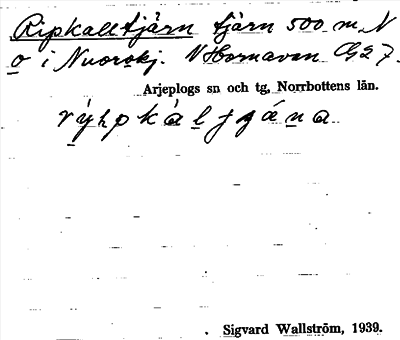 Ripkalltjärn tjärn 500 m N
o i Nuorokj. V Hornavan G27.
Arjeplogs sn och tg, Norrbottens län.
rẏhpkàljgána
Sigvard Wallström, 1939.